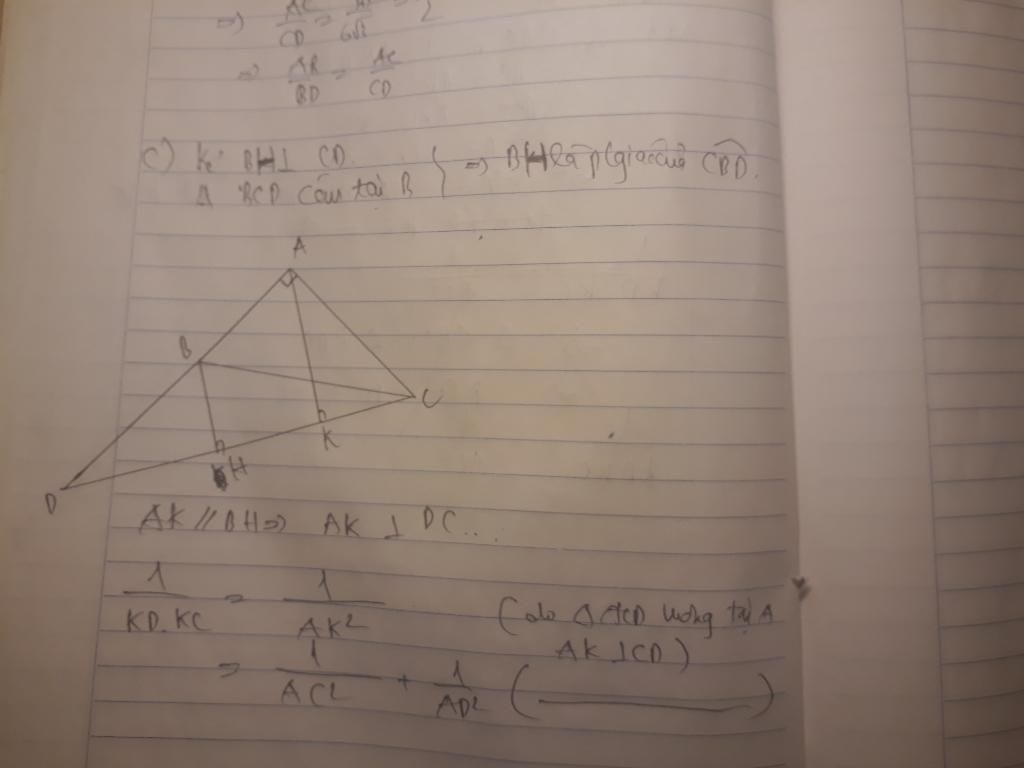 ⇒) AC/CD =
⇒ AB/BD = AC/CD
c) Kẻ BH ⊥ CD
Δ BCD cân tại B } ⇒ BH là p/giác của CBD.
A
B
C
K
H
D
AK // BH ⇒ AK ⊥ DC...
1/KD.KC = 1/AK² (do Δ ACD vuông tại A
AK ⊥ CD)
= 1/AC² + 1/AD² ( )